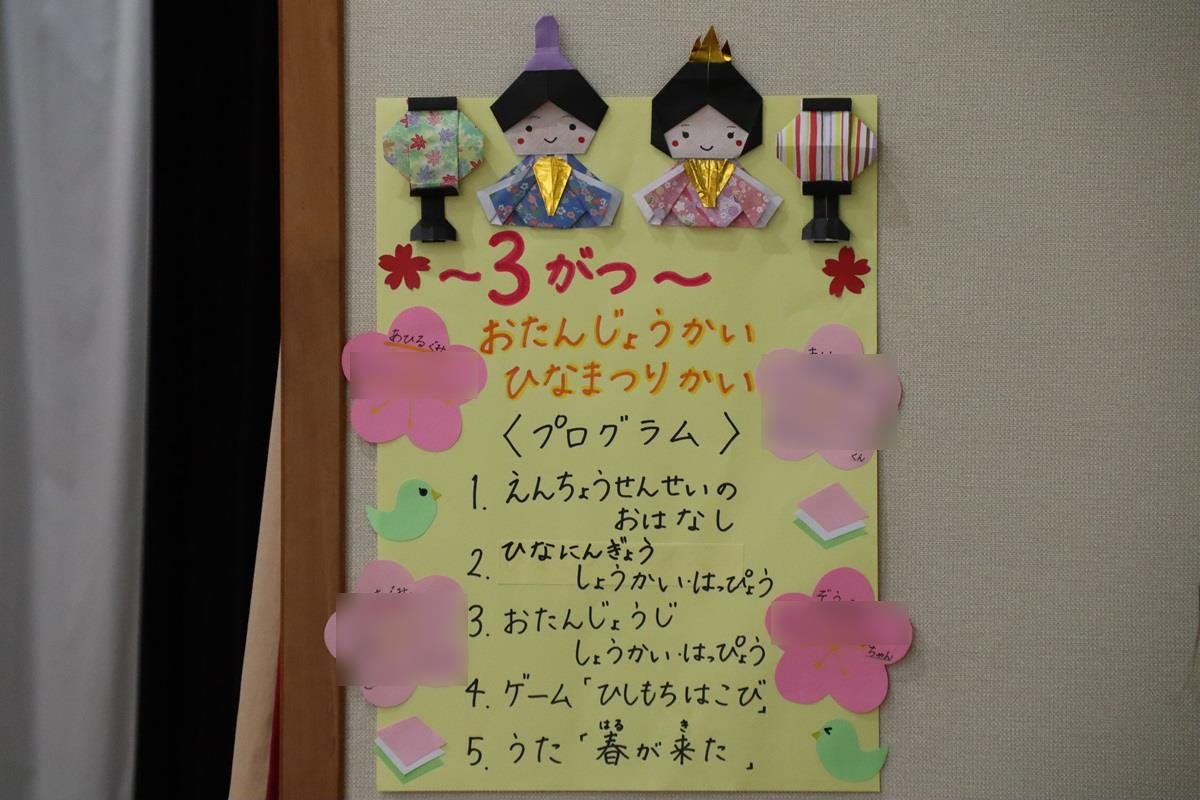 ～3がつ～
おたんじょうかい
ひなまつりかい
〈プログラム〉
1. えんちょうせんせいの
おはなし
2. ひなにんぎょう
しょうかい・はっぴょう
3. おたんじょうじ
しょうかい・はっぴょう
4. ゲーム「ひしもちはこび」
5. うた「春が来た」
はる き
あひるぐみ
くん
ちゃん